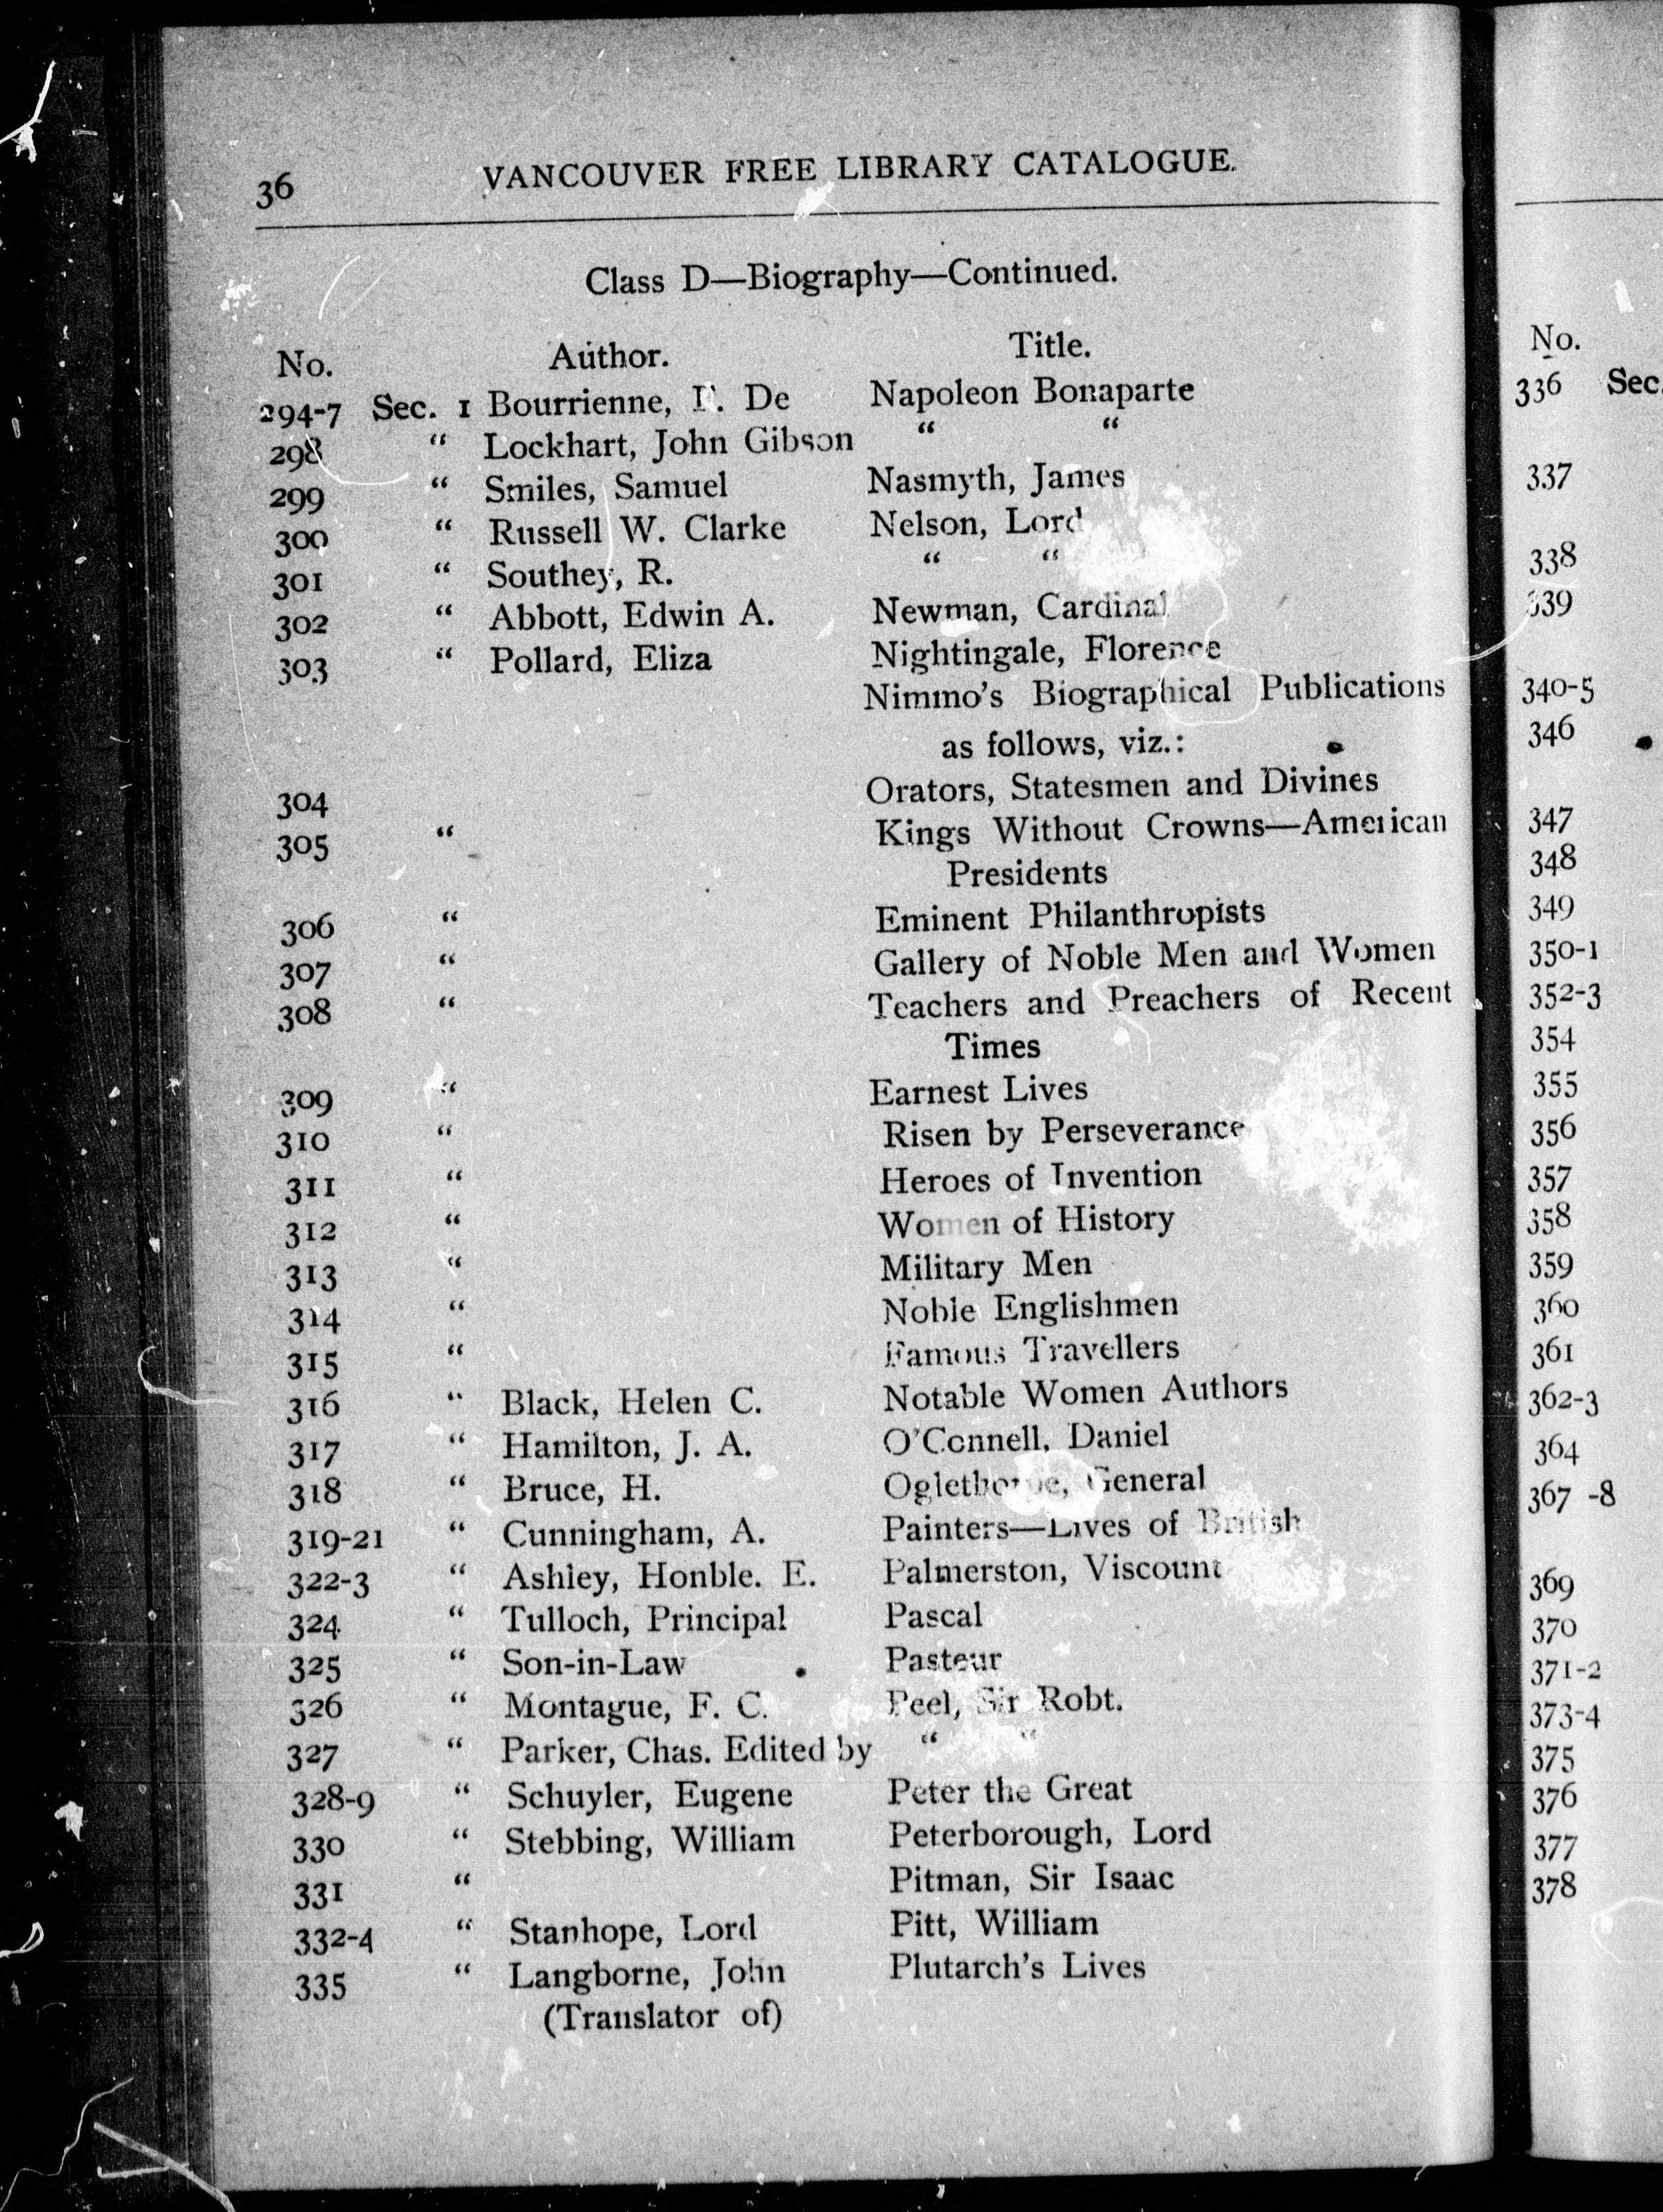 36 VANCOUVER FREE LIBRARY CATALOGUE.
Class D—Biography—Continued.
No. Author. Title.
294-7 Sec. 1 Bourrienne, De Napoleon Bonaparte
298 “ Lockhart, John Gibson “ “
299 “ Smiles, Samuel Nasmyth, James
300 “ Russell W. Clarke Nelson, Lord
301 “ Southey, R. “ “
302 “ Abbott, Edwin A. Newman, Cardinal
303 “ Pollard, Eliza Nightingale, Florence
Nimmo’s Biographical Publications
as follows, viz.:
304 Orators, Statesmen and Divines
305 “ Kings Without Crowns—American
Presidents
306 “ Eminent Philanthropists
307 “ Gallery of Noble Men and Women
308 “ Teachers and Preachers of Recent
Times
309 “ Earnest Lives
310 “ Risen by Perseverance
311 “ Heroes of Invention
312 “ Women of History
313 “ Military Men
314 “ Noble Englishmen
315 “ Famous Travellers
316 “ Black, Helen C. Notable Women Authors
317 “ Hamilton, J. A. O’Connell, Daniel
318 “ Bruce, H. Oglethorpe, General
319-21 “ Cunningham, A. Painters—Lives of British
322-3 “ Ashley, Honble. E. Palmerston, Viscount
324 “ Tulloch, Principal Pascal
325 “ Son-in-Law Pasteur
326 “ Montague, F. C. Peel, Sir Robt.
327 “ Parker, Chas. Edited by “ “
328-9 “ Schuyler, Eugene Peter the Great
330 “ Stebbing, William Peterborough, Lord
331 “ Pitman, Sir Isaac
332-4 “ Stanhope, Lord Pitt, William
335 “ Langborne, John Plutarch’s Lives
(Translator of)
No.
336 Sec.
337
338
339
340-5
346
347
348
349
350-1
352-3
354
355
356
357
358
359
360
361
362-3
364
367 -8
369
370
371-2
373-4
375
376
377
378